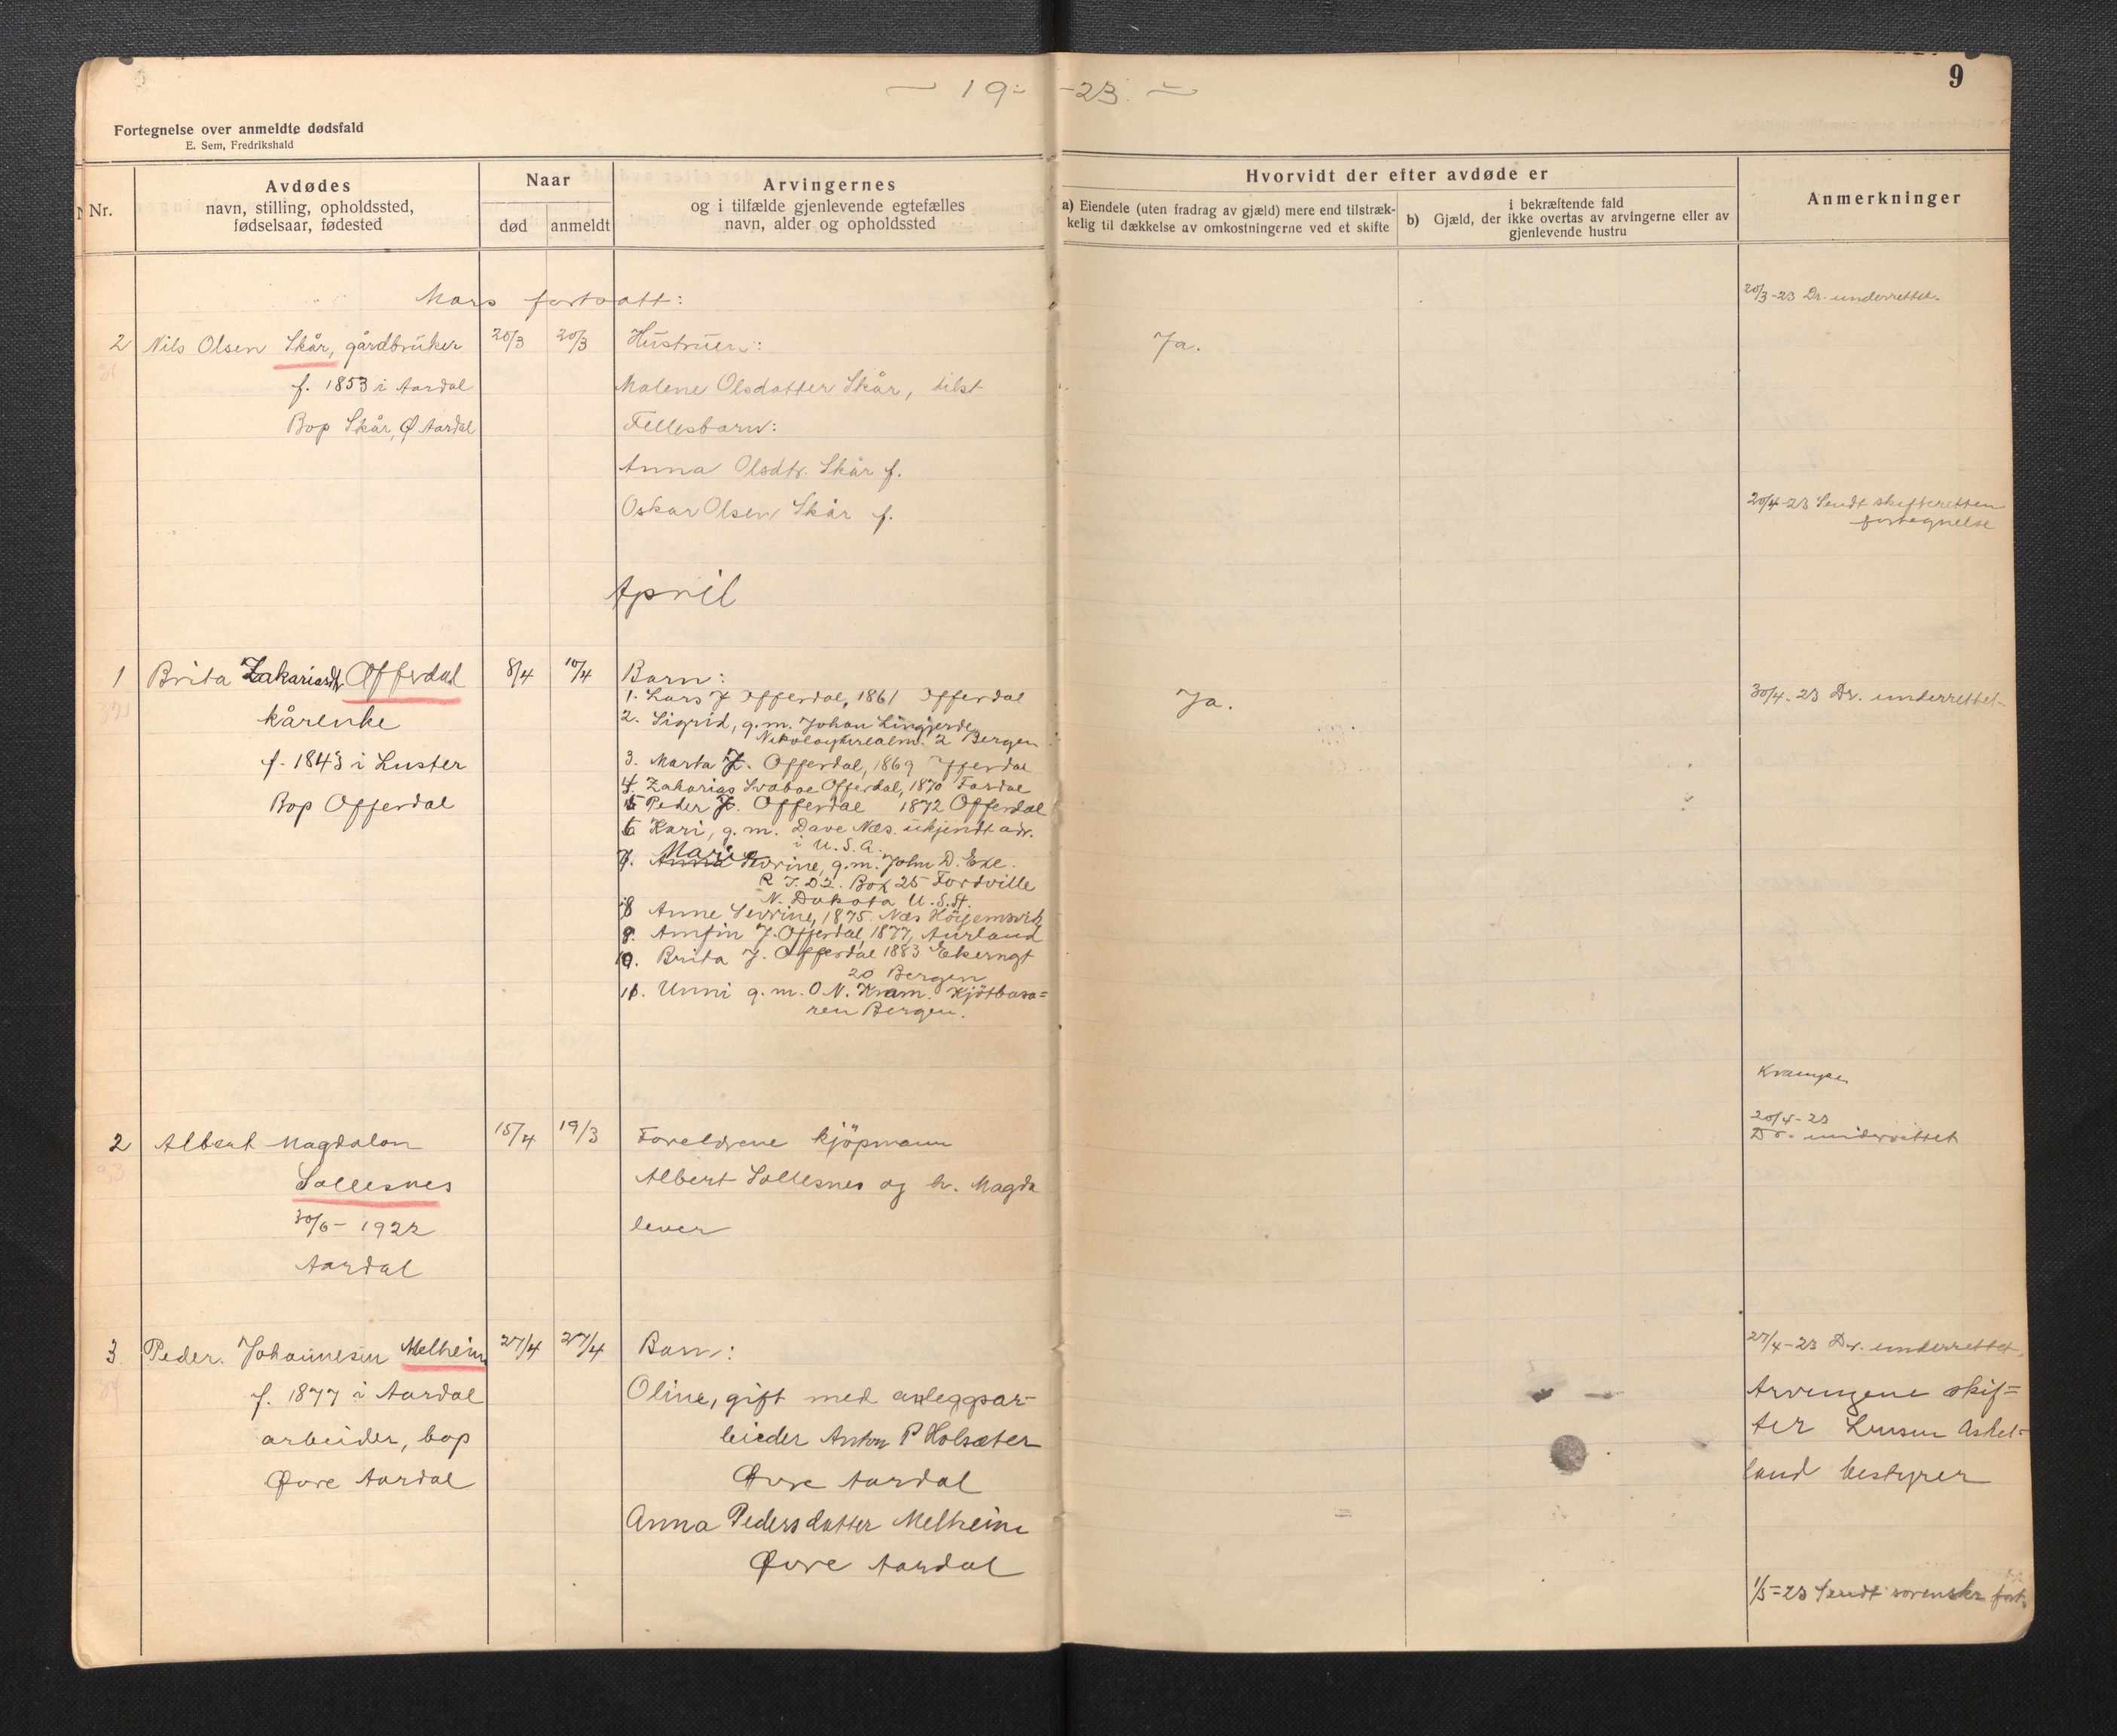 — 19 — 23. —
9
Fortegnelse over anmeldte dødsfald
E. Sem, Fredrikshald
Nr.
Avdødes
navn, stilling, opholdssted,
fødselsaar, fødested
Naar
død
anmeldt
Arvingernes
og i tilfælde gjenlevende egtefælles
navn, alder og opholdssted
Hvorvidt der efter avdøde er
a) Eiendele (uten fradrag av gjæld) mere end tilstræk-
kelig til dækkelse av omkostningerne ved et skifte
i bekræftende fald
b) Gjæld, der ikke overtas av arvingerne eller av
gjenlevende hustru
Anmerkninger
Mars fortsatt:
20/3-23 Dr. underrettet.
2 Nils Olsen Skår, gårdbruker
f. 1853 i Aardal
Bop Skår, Ø Aardal
20/3
20/3
Hustruen:
Malene Olsdatter Skår, tilst
Fellesbarn:
Anna Olsdtr. Skår f.
Oskar Olsen Skår f.
Ja.
20/4-23 Sendt skifteretten
fortegnelse
April
1 Brita Zakariasdtr Offerdal
kårenke
f. 1843 i Luster
Bop Offerdal
8/4
10/4
Barn:
1. Lars J Offerdal, 1861 Offerdal
2. Sigrid, g.m. Johan Lingjerde
2 Bergen
3. Marta J. Offerdal, 1869 Offerdal
4. Zakarias Svaboe Offerdal, 1870 Fardal
5 Peder J. Offerdal 1872 Offerdal
6 Kari, g.m. Dave Næs. ukjendt adr.
i U.S.A.
7. Anna Marie Sevrine, g.m. John D. Exe.
R F. D 2. Box 25 Fordville
N. Dakota U.S.A.
8 Anne Sevrine, 1875. Næs
9. Arnfin J. Offerdal, 1877, Aurland
10. Brita J. Offerdal 1883 Ekerngt
20 Bergen
11. Unni g.m. O N. Kram. Kjötbasa=
ren Bergen.
Ja.
30/4-23 Dr. underrettet
Krampe
2 Albert Magdalon
Sollesnes
30/6-1922
Aardal
15/4
19/3
Foreldrene kjöpmann
Albert Sollesnes og h. Magda
lever
20/4-23
Dr. underrettet
3. Peder. Johannesen Melheim
f. 1877 i Aardal
arbeider, bop
Øvre Aardal
27/4
27/4
Barn:
Oline, gift med anleggsar-
beider Anton P Holsæter
Øvre Aardal
Anna Pedersdatter Melheim
Øvre Aardal
27/4-23 Dr. underrettet.
Arvingene skif=
ter Askel=
land bestyrer
1/5=23 Sendt sorenskr fort.